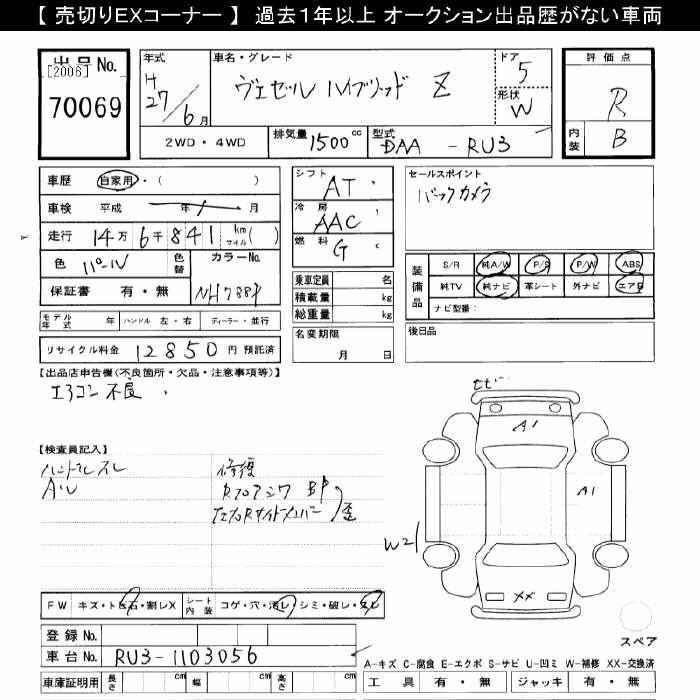 【 売切りEXコーナー 】 過去１年以上 オークション出品歴がない車両
出品 No.
[2006]
70069
年式
H
27/6月
車名・グレード
ヴェゼル ハイブリッド Z
ドア
5
形状
W
評価点
R
内装
B
2WD・4WD
排気量 1500 cc
型式 DAA - RU3
車歴 自家用・( )
車検 平成 年 月
走行 14万 6千 841 km マイル( )
色
色替
カラーNo.
NH788P
保証書 有・無
シフト AT
冷房 AAC
燃料 G
乗車定員 名
積載量 kg
総重量 kg
名変期限
月 日
セールスポイント
バックカメラ
装備品
S/R 純A/W P/S P/W ABS
純TV 純ナビ 革シート 外ナビ エアB
ナビ型番：
後日品
モデル年式 年 ハンドル 左・右 ディーラー・並行
リサイクル料金 12850 円 預託済
【出品店申告欄(不良箇所・欠品・注意事項等)】
エアコン不良
【検査員記入】
ハンドルスレ
修復
歪
A1
A1
W2
XX
FW キズ・トビ石・割レX
シート内装 コゲ・穴・汚レ・シミ・破レ・スレ
登録 No.
車台 No. RU3-1103056
車庫証明用 長さ cm 幅 cm 高さ cm
スペア
A-キズ C-腐食 E-エクボ S-サビ U-凹ミ W-補修 XX-交換済
工具 有・無 ジャッキ 有・無